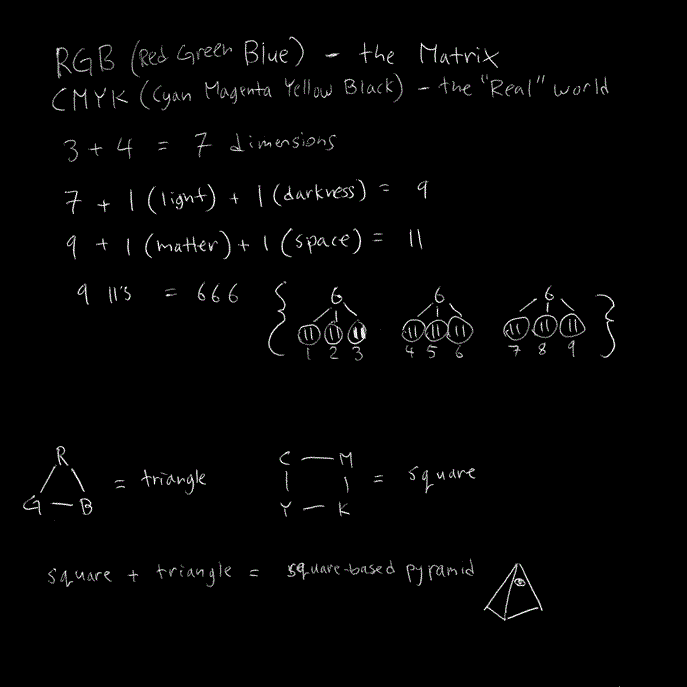 RGB (Red Green Blue) - the Matrix
CMYK (Cyan Magenta Yellow Black) - the "Real" world
3 + 4 = 7 dimensions
7 + 1 (light) + 1 (darkness) = 9
9 + 1 (matter) + 1 (space) = 11
9 11's = 666
6 6 6
11 11 11 11 11 11 11 11 11
1 2 3 4 5 6 7 8 9
R
G - B = triangle
C - M
Y - K = square
square + triangle = square-based pyramid